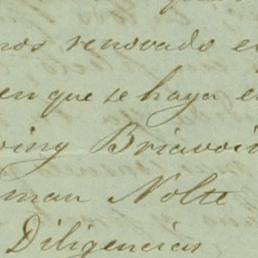 mos renovado e
en que se haya e
ving Briavoin
man Nolte
Diligencias